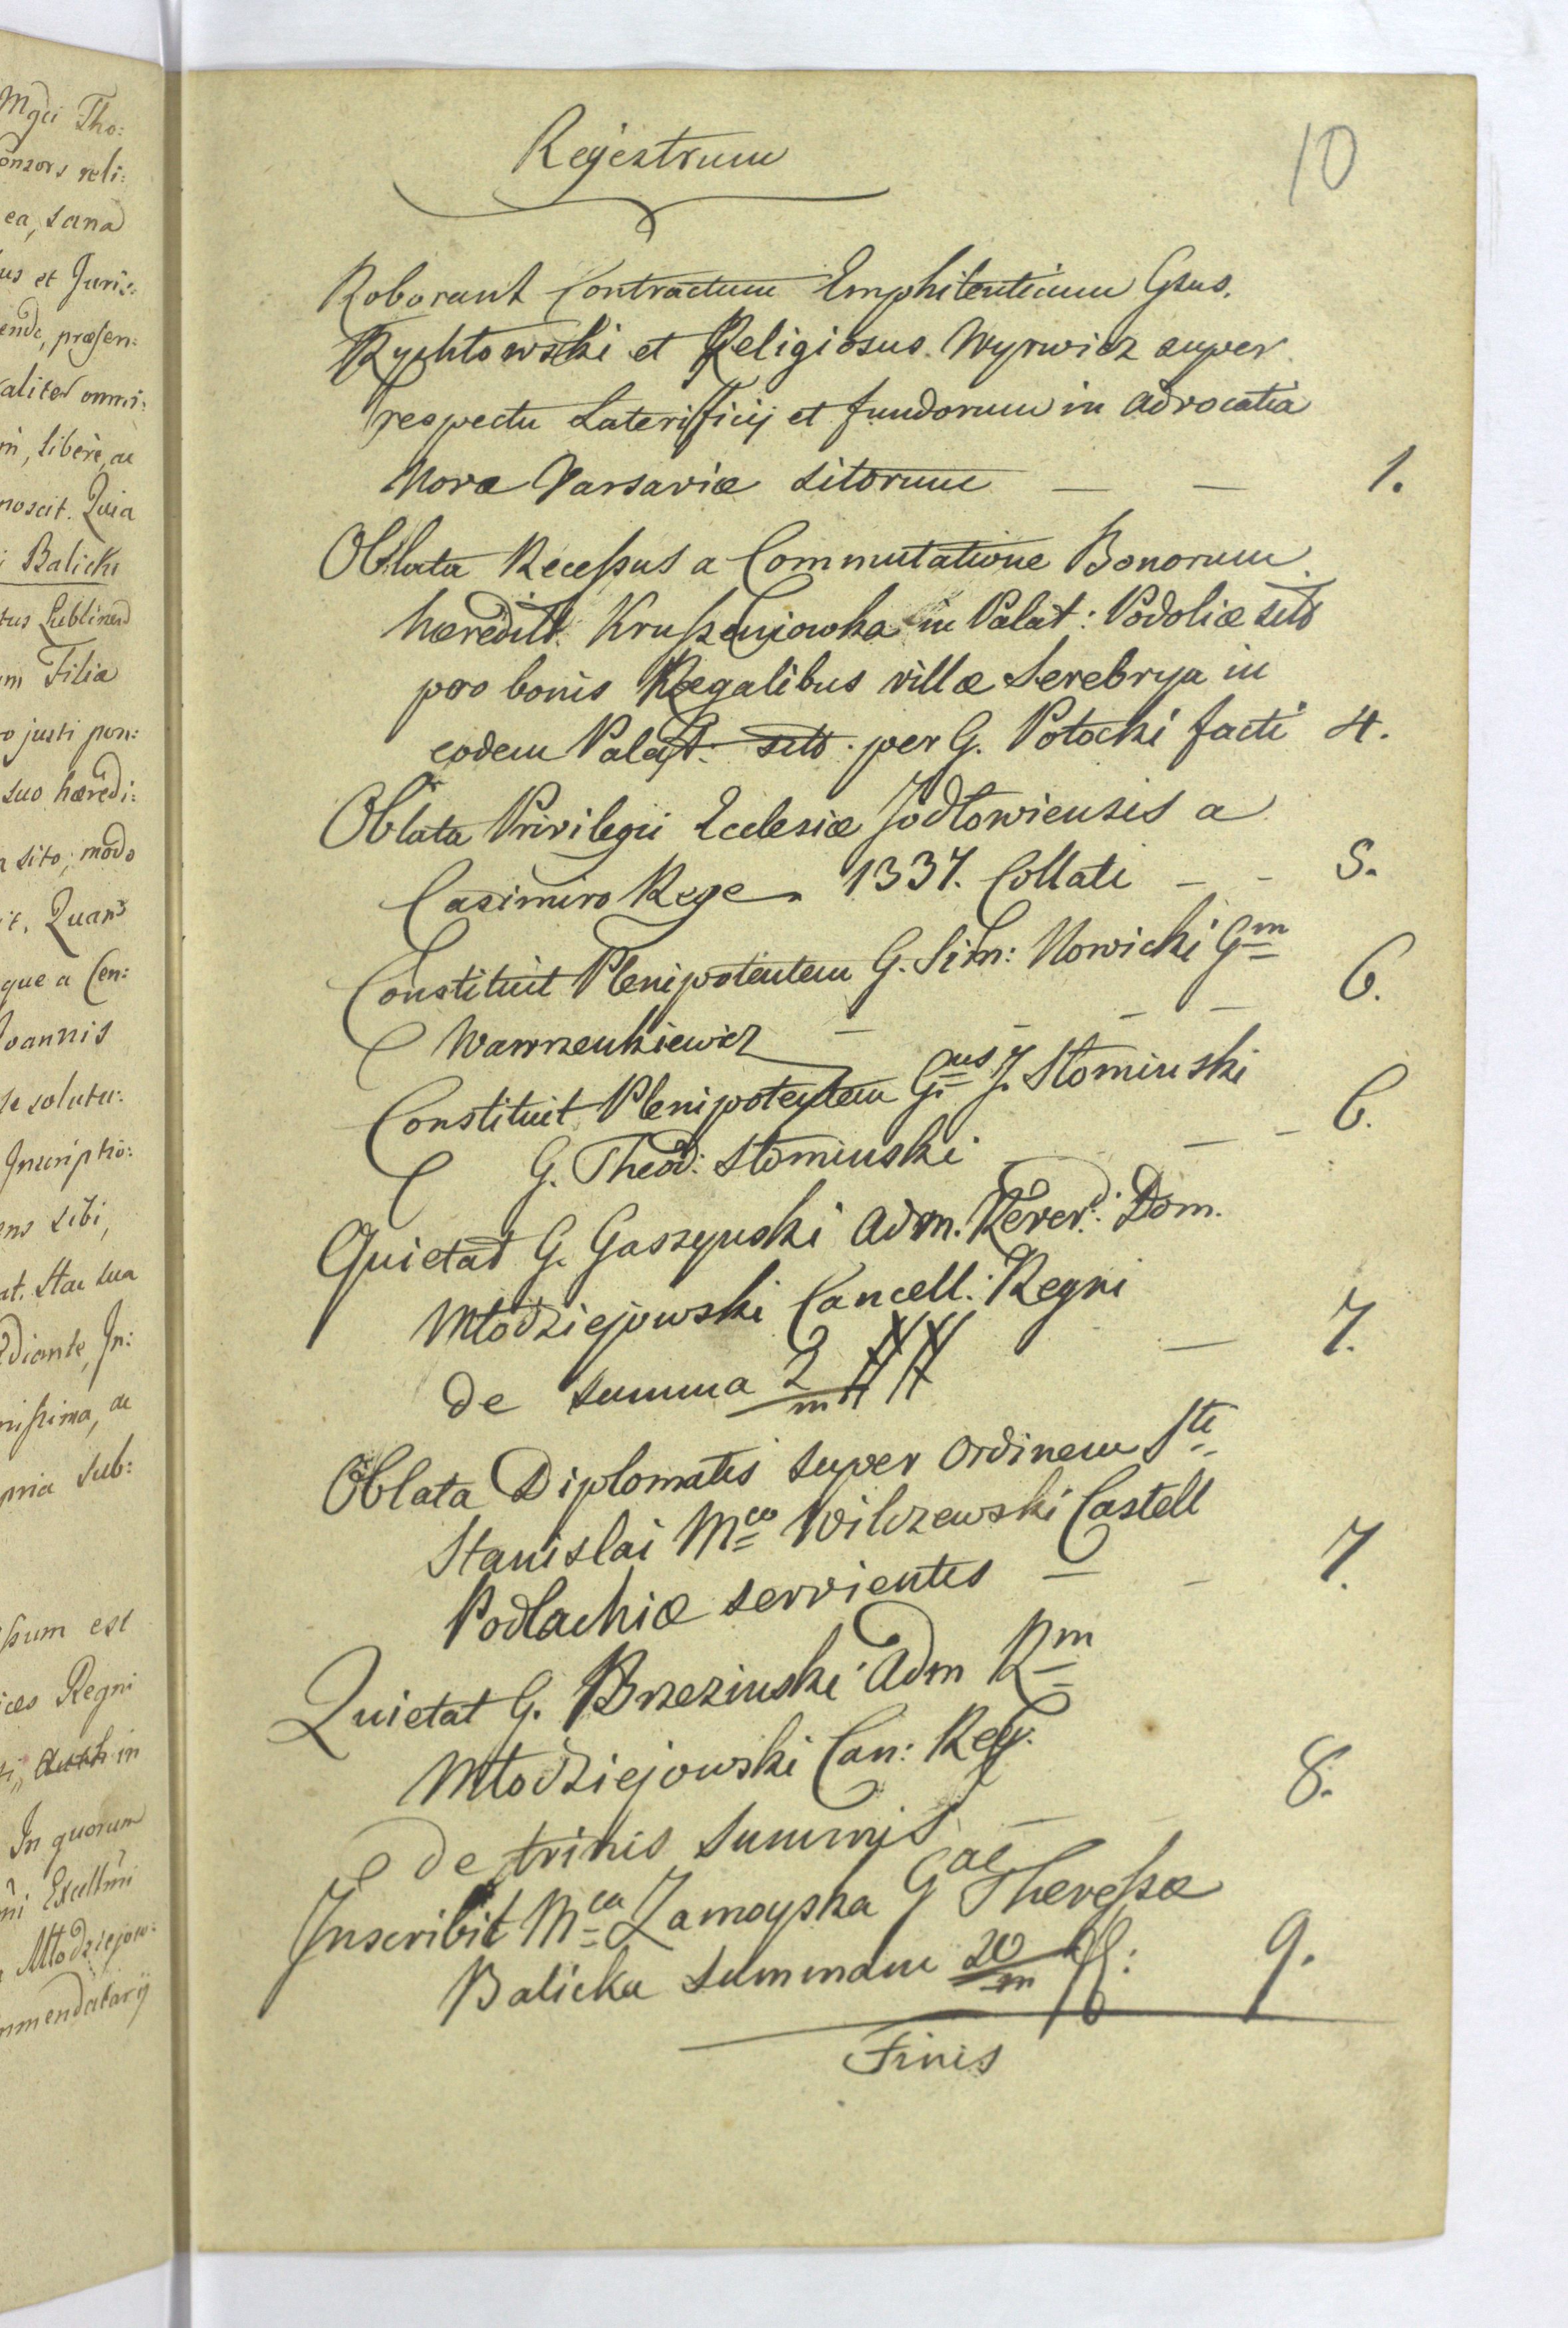 Mgci Tho:
onsors reli:
ea, sana
us et Juris:
ende, præsen:
aliter omni:
m, libere, ac
noscit. Quia
i Balicki
tus Lublinen
m Filia
o justi pon:
suo hæredi:
a sito, modo
it. Quam
que a Cen:
Joannis
se solutu:
Inscriptio:
ens sibi,
at. Hac sua
ediante, In:
nissima, ac
pria sub:
ssum est
ices Regni
in
In quorum
mi Excellmi
Młodziejow:
mmendatarij
10
Regestrum
Roborant Contractum Emphiteuticum Gsus.
Rychłowski et Religiosus Wyrwicz super
respectu Laterifficij et fundorum in Advocatia
Nova Varsaviæ sitorum — — 1.
Oblata Recessus a Commutatione Bonorum
hæreditt. Kruszeniowka in Palat: Podoliæ sito
pro bonis Regalibus villæ Serebrya in
eodem Palat: sito. per G. Potocki facti 4.
Oblata Privilegii Ecclesiæ Jodłowiensis a
Casimiro Rege 1337. Collati - - 5.
Constituit Plenipotentem G. Sim: Nowicki Gm
Wawrzenkiewicz — — — — 6.
Constituit Plenipotentem G.us J. Słominski
G. Theod: Słominski — — - 6.
Quietat G. Gaszynski Adm. Rever: Dom.
Młodziejowski Cancell: Regni
de summa 2/m ## — 7.
Oblata Diplomatis super Ordinem Sti
Stanislai Mco Wilczewski Castell
Podlachiæ servientis — - 7.
Quietat G. Brzezinski Adm Rm
Młodziejowski Can: Reg.
de trinis summis — - 8.
Inscribit Mca Zamoyska Gae Theressæ
Balicka summam 20/m ff: 9.
Finis